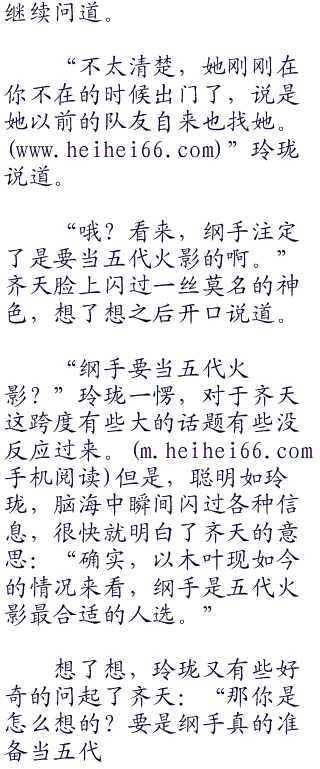 继续问道。
“不太清楚，她刚刚在
你不在的时候出门了，说是
她以前的队友自来也找她。
(www.heihei66.com)”玲珑
说道。
“哦？看来，纲手注定
了是要当五代火影的啊。”
齐天脸上闪过一丝莫名的神
色，想了想之后开口说道。
“纲手要当五代火
影？”玲珑一愣，对于齐天
这跨度有些大的话题有些没
反应过来。(m.heihei66.com
手机阅读)但是，聪明如玲
珑，脑海中瞬间闪过各种信
息，很快就明白了齐天的意
思：“确实，以木叶现如今
的情况来看，纲手是五代火
影最合适的人选。”
想了想，玲珑又有些好
奇的问起了齐天：“那你是
怎么想的？要是纲手真的准
备当五代